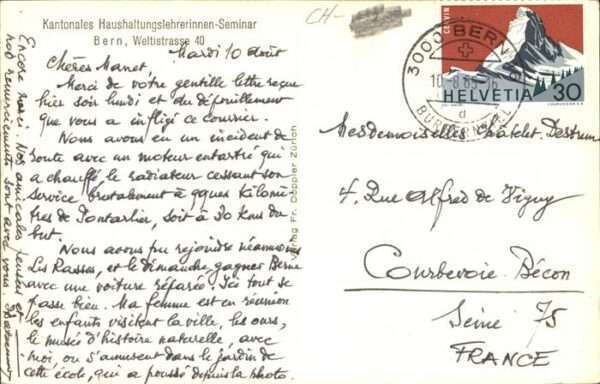 Kantonales Haushaltungslehrerinnen-Seminar
Bern, Weltistrasse 40
CH-
Mardi 10 Août
Chères Manet,
Merci de votre gentille lettre reçue
hier soir lundi et du dépouillement
que vous a infligé ce courrier.
Nous avons eu un incident de
route avec un moteur entartré qui
a chauffé, le radiateur cessant son
service brutalement à qques kilomè
tres de Pontarlier, soit à 30 kms du
but.
Nous avons pu rejoindre néanmoins
Les Rasses, et le dimanche gagner Berne
avec une voiture réparée. Ici tout se
passe bien. Ma femme est en réunion
les enfants visitent la ville, les ours,
le musée d'histoire naturelle, avec
moi, ou s'amusent dans le jardin de
cette école, qui a poussé depuis la photo.
Encore merci. Nos amicales pensées et
nos remerciements sont avec vous.
Verlag Fr. Doppler Zürich
CERVIN
HELVETIA 30
3000 BERN
10.8.65
d
Mesdemoiselles Châtelet-Destrem
4, Rue Alfred de Vigny
Courbevoie-Bécon
Seine 75
FRANCE